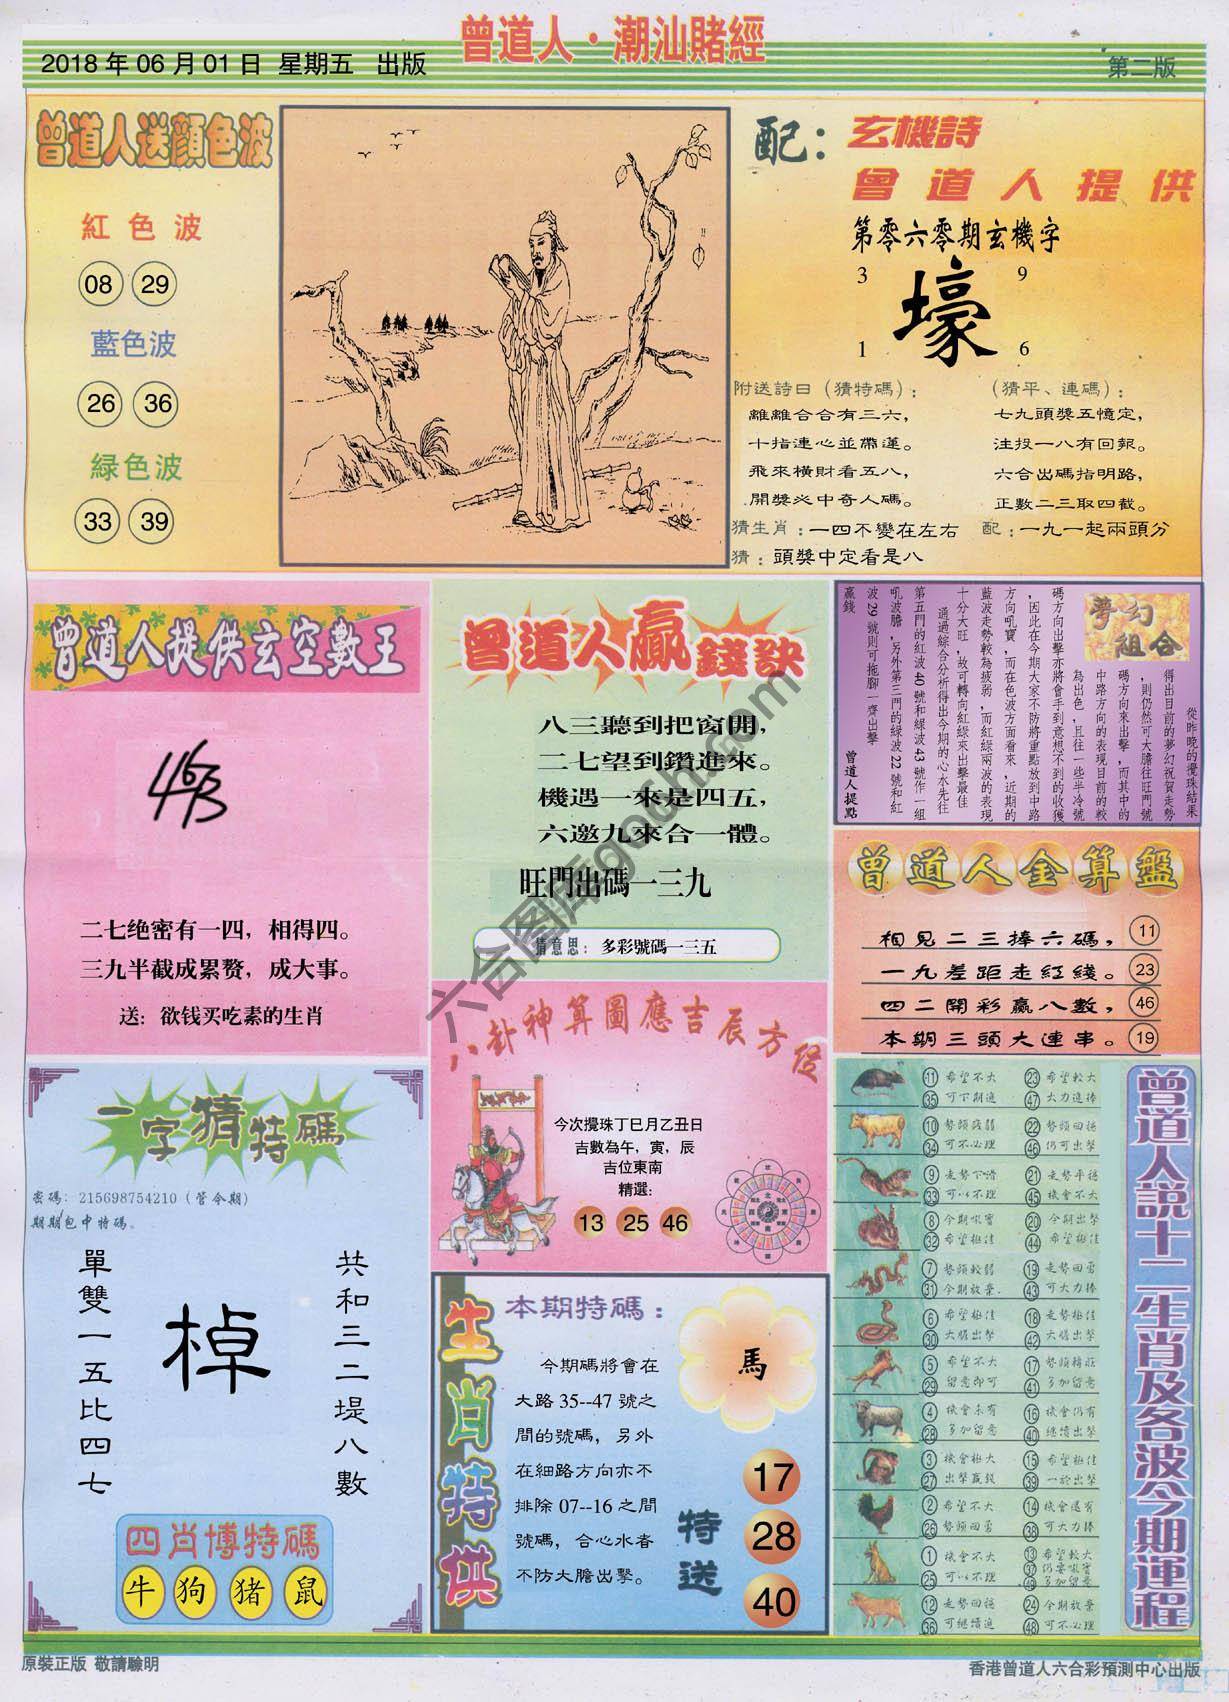 曾道人·潮汕賭經
2018 年 06 月 01 日 星期五 出版
第二版
曾道人送顏色波
紅色波
08 29
藍色波
26 36
緑色波
33 39
配：玄機詩
曾道人提供
第零六零期玄機字
3 9
壕
1 6
附送詩曰（猜特碼）：
離離合合有三六，
十指連心並帶運。
飛來橫財看五八，
開獎必中奇人碼。
（猜平、連碼）：
七九頭獎五憶定，
注投一八有回報。
六合出碼指明路，
正數二三取四截。
猜生肖：一四不變在左右
配：一九一起兩頭分
猜：頭獎中定看是八
曾道人提供玄空數王
463
二七绝密有一四，相得四。
三九半截成累赘，成大事。
送：欲钱买吃素的生肖
曾道人贏錢訣
八三聽到把窗開，
二七望到鑽進來。
機遇一來是四五，
六邀九來合一體。
旺門出碼一三九
猜意思：多彩號碼一三五
夢幻組合
從昨晚的攪珠結果
得出目前的夢幻祝賀走勢
，則仍然可大膽往旺門號
碼方向來出擊，而其中的
中路方向的表現目前的較
為出色，且往一些半冷號
碼方向出擊亦將會手到意想不到的收獲
，因此在今期大家不防將重點放到中路
方向吼寶，而在色波方面看來，近期的
藍波走勢較為疲弱，而紅綠兩波的表現
十分大旺，故可轉向紅綠來出擊最佳
通過綜合分析得出今期的心水先往
第五門的紅波 40 號和綠波 43 號作一組
吼波膽，另外第三門的綠波 22 號和紅
波 29 號則可拖腳一齊出擊
贏錢
曾道人提點
曾道人金算盤
相見二三捧六碼，11
一九差距走紅綫。23
四二開彩贏八數，46
本期三頭大連串。19
八卦神算圖應吉辰方位
今次攪珠丁巳月乙丑日
吉數為午，寅，辰
吉位東南
精選：
13 25 46
一字猜特碼
密碼：215698754210（管今期）
期期包中特碼。
單雙一五比四七
棹
共和三二堤八數
四肖博特碼
牛 狗 猪 鼠
生肖特供
本期特碼：
今期碼將會在
大路 35--47 號之
間的號碼，另外
在細路方向亦不
排除 07--16 之間
號碼，合心水者
不防大膽出擊。
馬
特送
17
28
40
曾道人説十二生肖及各波今期運程
11 希望不大 23 希望較大
35 可下期進 47 大力進捧
10 勢頭疲弱 22 勢頭回穩
34 可不必理 46 仍可出擊
9 走勢下滑 21 走勢平穩
33 可以不理 45 機會不大
8 今期吼寶 20 今期出擊
32 希望極佳 44 希望極佳
7 勢頭較弱 19 走勢回勇
31 今期放棄 43 可大力捧
6 希望極佳 18 走勢極佳
30 大膽出擊 42 大膽出擊
5 希望不大 17 勢頭轉旺
29 留意即可 41 多加留意
4 機會未有 16 機會仍有
28 多加留意 40 繼續出擊
3 機會極大 15 希望極佳
27 出擊贏錢 39 一於出擊
2 希望不大 14 機會還有
26 勢頭回勇 38 可大力捧
1 機會不大 13 希望較大
25 可以不理 37 仍要吼寶
49 多加留意
12 走勢回穩 24 今期放棄
36 可繼續進 48 可不必理
原裝正版 敬請驗明
香港曾道人六合彩預測中心出版
六合图库gooth.com